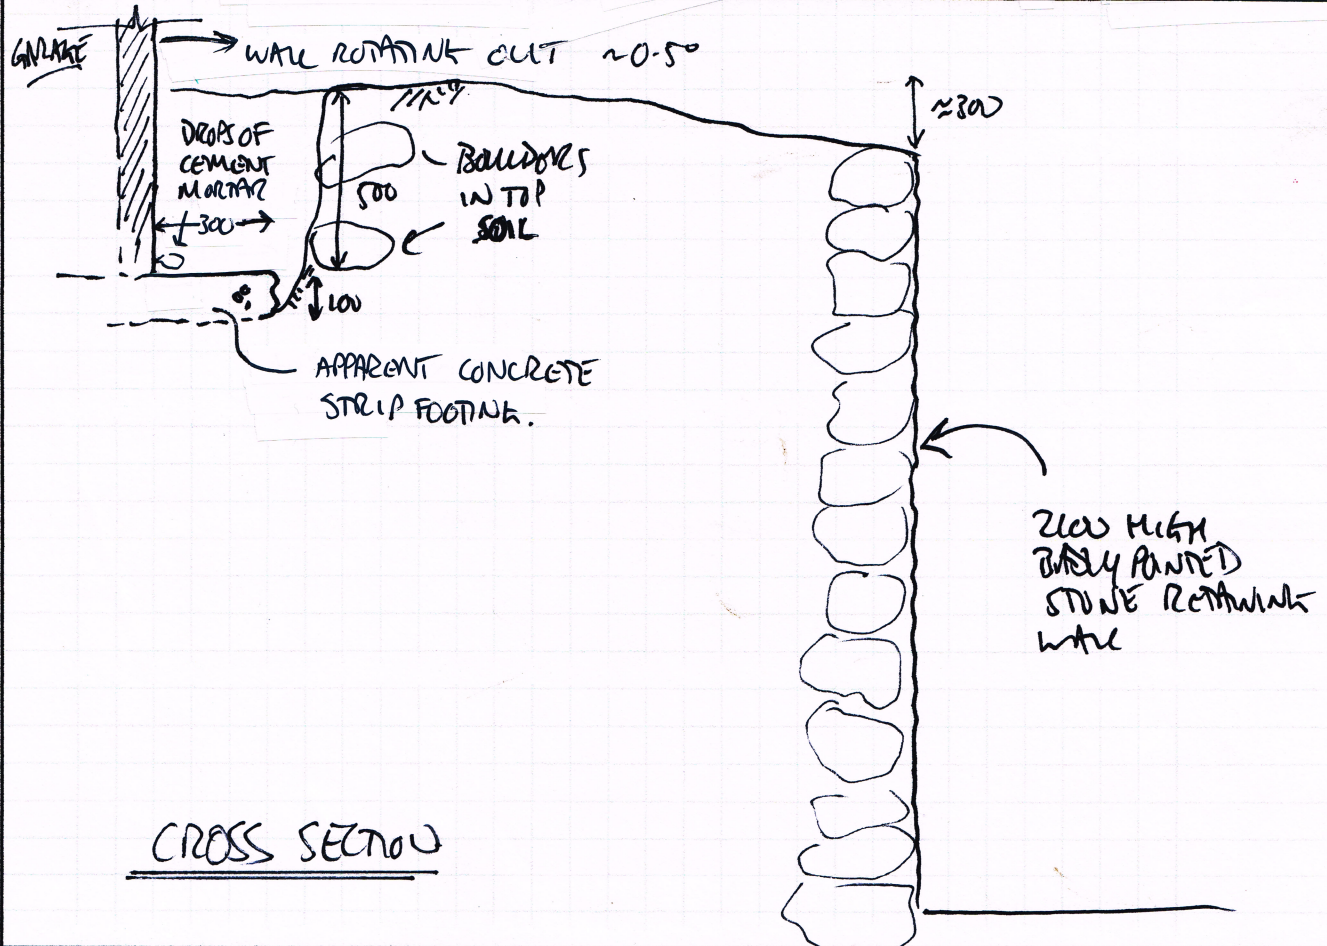 GARAGE
WALL ROTATING OUT ~0.5°
≈300
DROPS OF
CEMENT
MORTAR
300
500
BOULDERS
IN TOP
SOIL
100
APPARENT CONCRETE
STRIP FOOTING.
2100 HIGH
BADLY POINTED
STONE RETAINING
WALL
CROSS SECTION